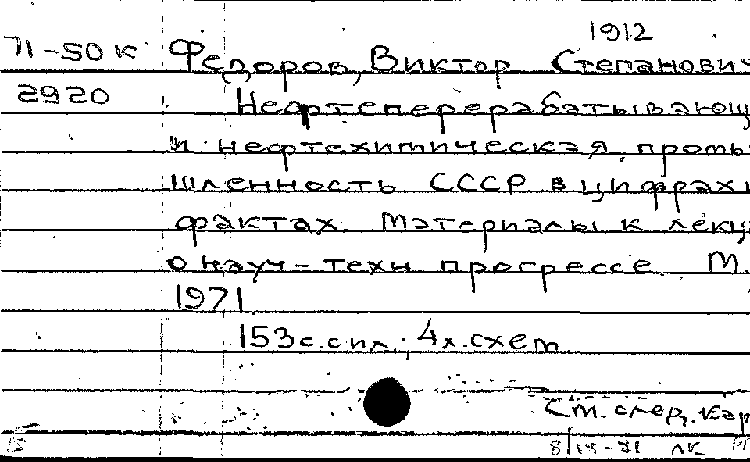 1912
71-50к Федоров, Виктор Степанович
2920 Нефтеперерабатывающ
и нефтехимическая промы
шленность СССР в цифрах и
фактах. Материалы к лекц
о науч-техн прогрессе М.
1971
153с.с ил. 4л.схем
См. след. кар